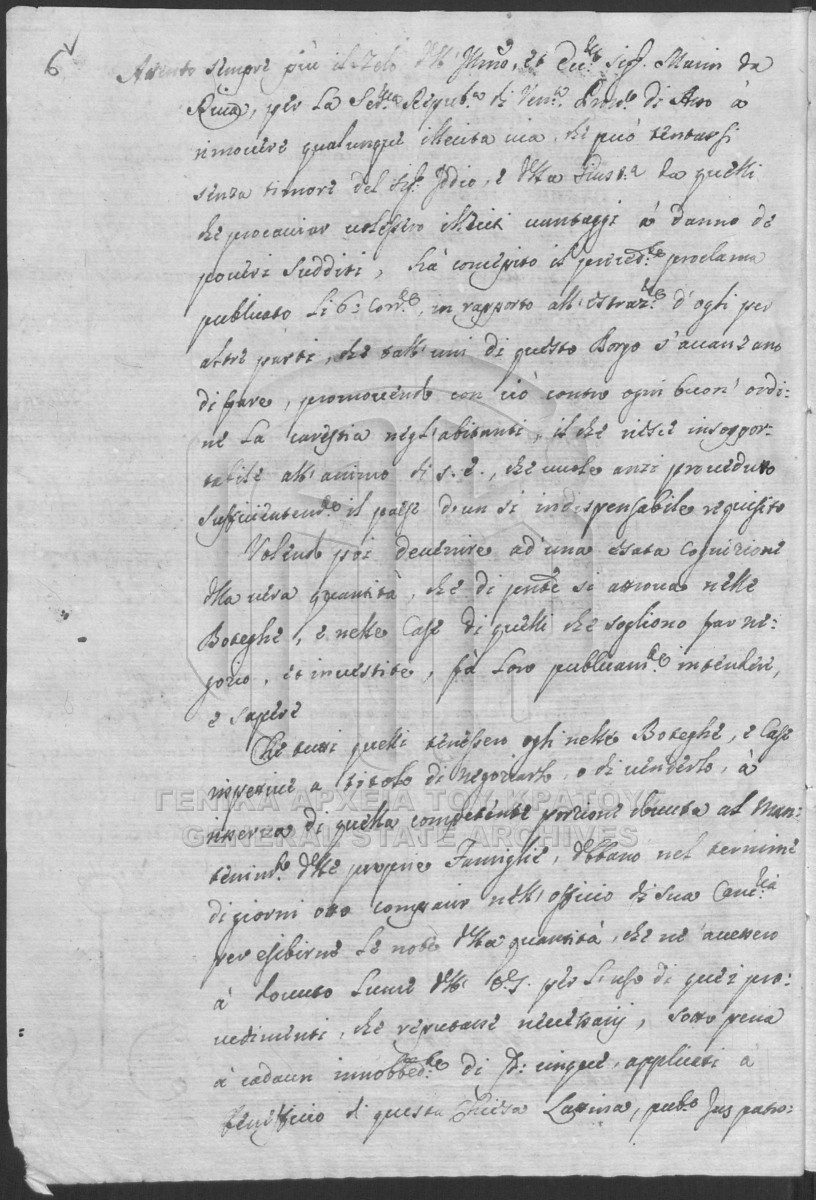 6
Attento sempre più il zelo dell' Illmo, et Ecc.mo Sig.r Marin da
Riva, per la Ser.ma Repub.a di Ven.a Prov.r di Arta à
rimovere qualunque illecita via, che può tentarsi
senza timore del Sig.r Iddio, e della Giust.a da quelli
che procacciar volessero illeciti vantaggi à danno de
poveri sudditi, hà concepito il preced.te proclama
publicato li 6: Corr.te, in rapporto all'estraz.ne d'ogli per
altre parti, che tall'uni di questo Borgo s'avanzano
di fare, promovendo con ciò contro ogni buon' ordi:
ne la carestia negl'abitanti, il che riesce insoppor:
tabile all'animo di S. E., che vuole anzi proveduto
sufficientem.te il paese d'un sì indispensabile requisito
Volendo poi devenire ad'una esata cognizione
della vera quantità, che di pnte si attrova nelle
Boteghe, e nelle Case di quelli che sogliono far ne:
gozio, et investite, fà loro publicam.te intendere,
e sapere
Che tutti quelli tenessero ogli nelle Boteghe, e Case
rispettive a titolo di negoziarlo, o di venderlo, à
riserva di quella competente porzione dovuta al man:
tenim.to delle proprie Famiglie, debbano nel termine
di giorni otto comparir nell'officio di sua Canc.ria
per esibirne le note della quantità, che ne avessero
à dovuto lume dell' E. S. per l'uso di quei pro:
vedimenti, che reputasse necessarij, sotto pena
à cadaun innobbed.te di D: cinque, applicati à
beneficio di questa Chiesa Latina, pub.o Jus patro:
ΓΕΝΙΚΑ ΑΡΧΕΙΑ ΤΟΥ ΚΡΑΤΟΥΣ
GENERAL STATE ARCHIVES